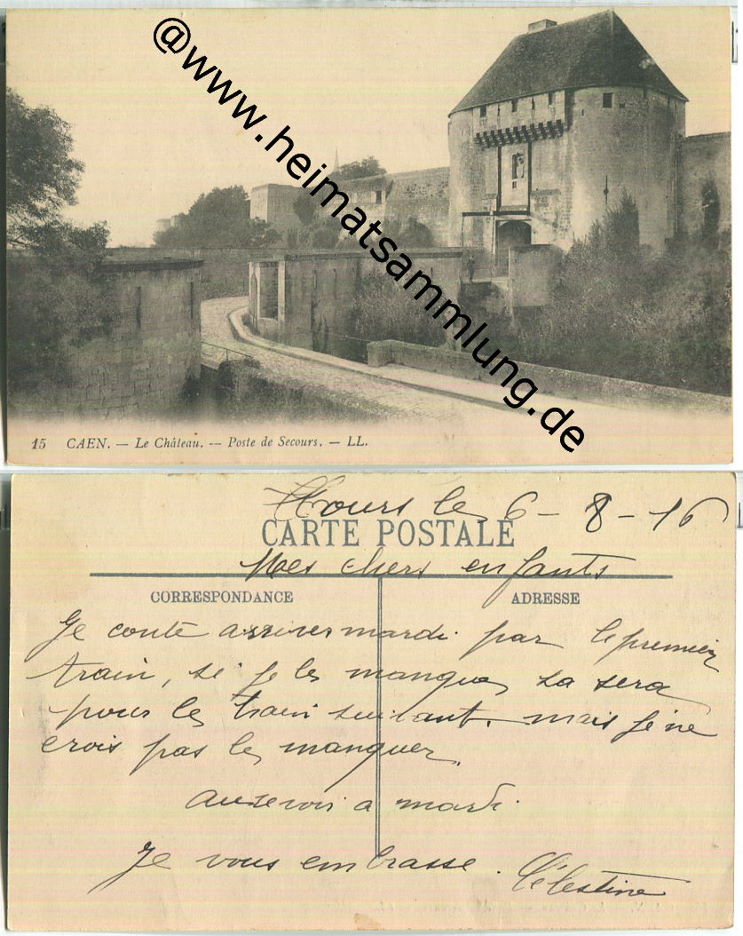 @www.heimatsammlung.de
15 CAEN. — Le Château. — Poste de Secours. — LL.
le 6 - 8 - 16
CARTE POSTALE
Mes chers enfants
CORRESPONDANCE ADRESSE
Je conte arriver mardi par le premier
train, si je les manques sa sera
pour les train suivant. mais je ne
crois pas les manquer.
auresevoir a mardi.
Je vous embrasse. Célestine